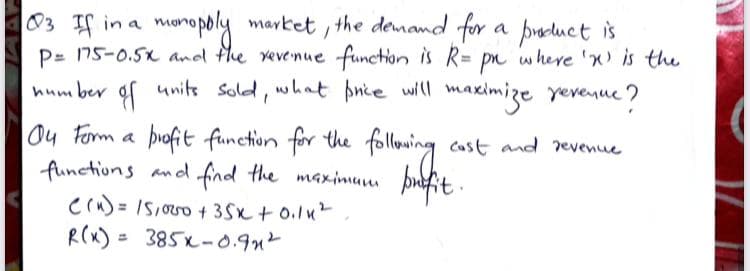 Q3 If in a monopoly market, the demand for a product is
P= 175-0.5x and the revenue function is R= px where 'x' is the
number of units sold, what price will maximize revenue?
Q4 Form a profit function for the following cost and revenue
functions and find the maximum profit.
C(x) = 15,000 + 35x + 0.1x²
R(x) = 385x - 0.9x²